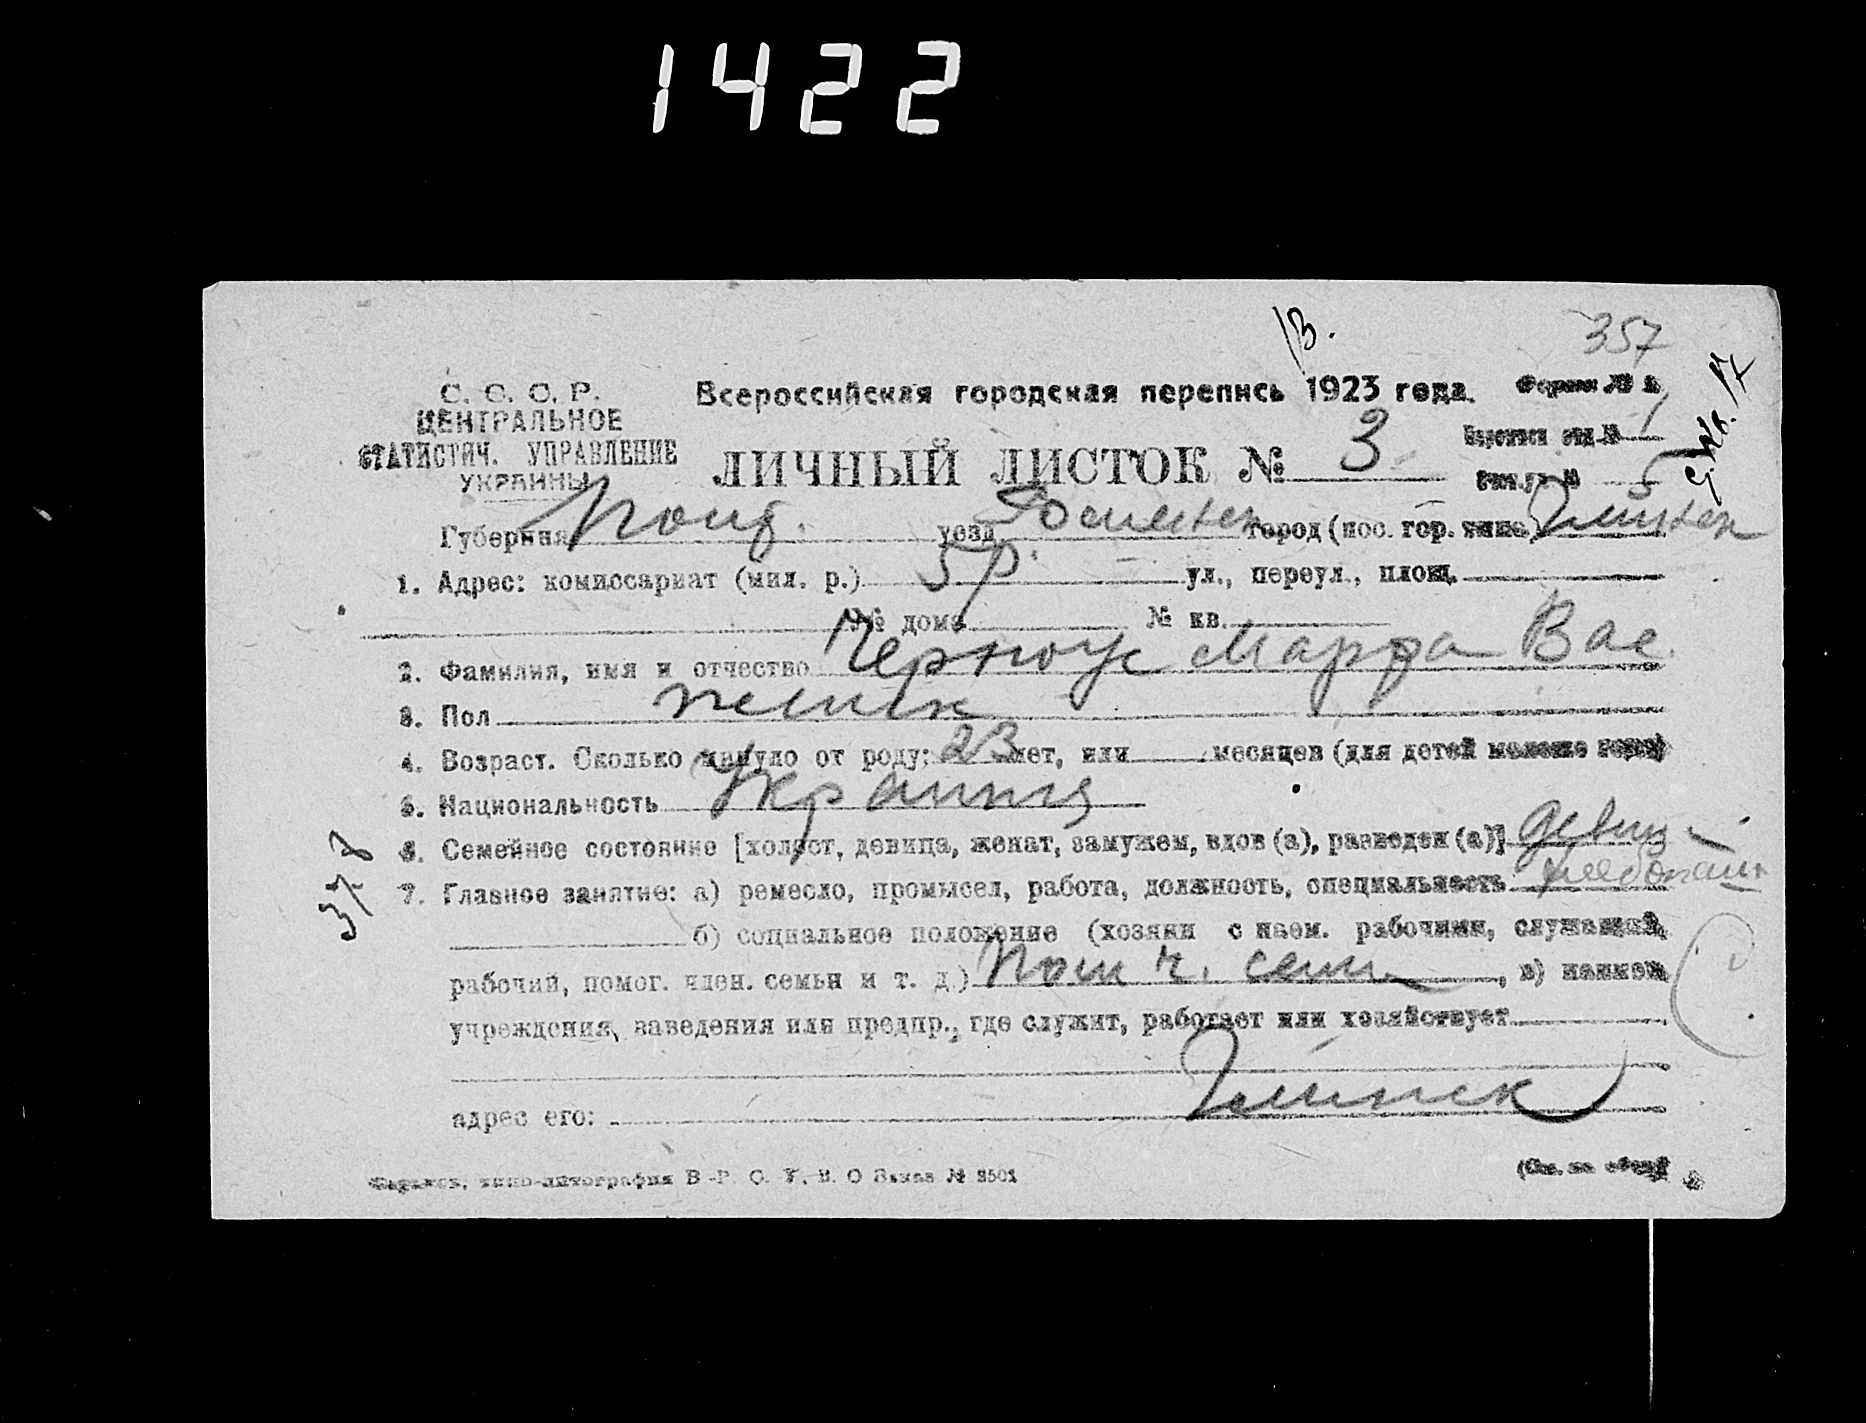 1422
13.
357
С. С. С. Р.
ЦЕНТРАЛЬНОЕ
СТАТИСТИЧ. УПРАВЛЕНИЕ
УКРАИНЫ
Всероссийская городская перепись 1923 года.
Форма № 1
ЛИЧНЫЙ ЛИСТОК № 3
Переписн отд. № 1
Счетн. уч. № 5
17
Губерния Полт. уезд Роменск город (пос. гор. типа) Глинск
1. Адрес: комиссариат (мил. р.) 5 р. ул., переул., площ.
№ дома № кв.
2. Фамилия, имя и отчество Черноус Марфа Вас.
3. Пол женск
4. Возраст. Сколько минуло от роду: 23 лет, или месяцев (для детей моложе года)
5. Национальность Украинка
6. Семейное состояние [холост, девица, женат, замужем, вдов (а), разведен (а)] Девиц
378
7. Главное занятие: а) ремесло, промысел, работа, должность, специальность Хлебопаш
б) социальное положение (хозяин с наем. рабочими, служащий,
рабочий, помог. член. семьи и т. д.) Пом ч. сем. , в) наимен
учреждения, заведения или предпр., где служит, работает или хозяйствует
адрес его: Глинск
Харьков, типо-литография В.-Р. С. У. В. О Заказ № 3501
(См. на обор.)